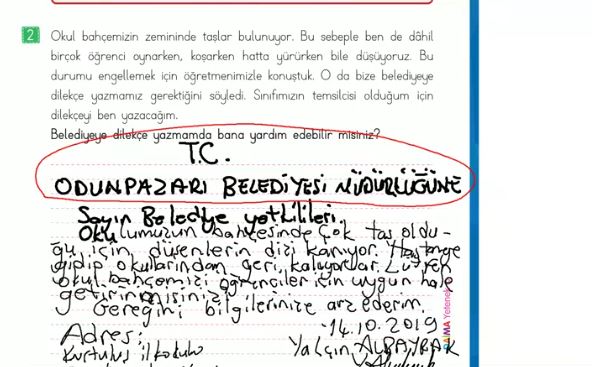 2 Okul bahçemizin zemininde taşlar bulunuyor. Bu sebeple ben de dâhil
birçok öğrenci oynarken, koşarken hatta yürürken bile düşüyoruz. Bu
durumu engellemek için öğretmenimizle konuştuk. O da bize belediyeye
dilekçe yazmamız gerektiğini söyledi. Sınıfımızın temsilcisi olduğum için
dilekçeyi ben yazacağım.
Belediyeye dilekçe yazmamda bana yardım edebilir misiniz?
T.C.
ODUNPAZARI BELEDİYESİ MÜDÜRLÜĞÜNE
Sayın Belediye yetkilileri,
Okulumuzun bahçesinde çok taş oldu-
ğu için düşenlerin dizi kanıyor. Hastaneye
gidip okullarından geri kalıyorlar. Lütfen
okul bahçemizi öğrenciler için uygun hale
getirir misiniz?
Gereğini bilgilerinize arz ederim.
14.10.2019
Adres: Yalçın ALBAYRAK
Kurtuluş ilkokulu